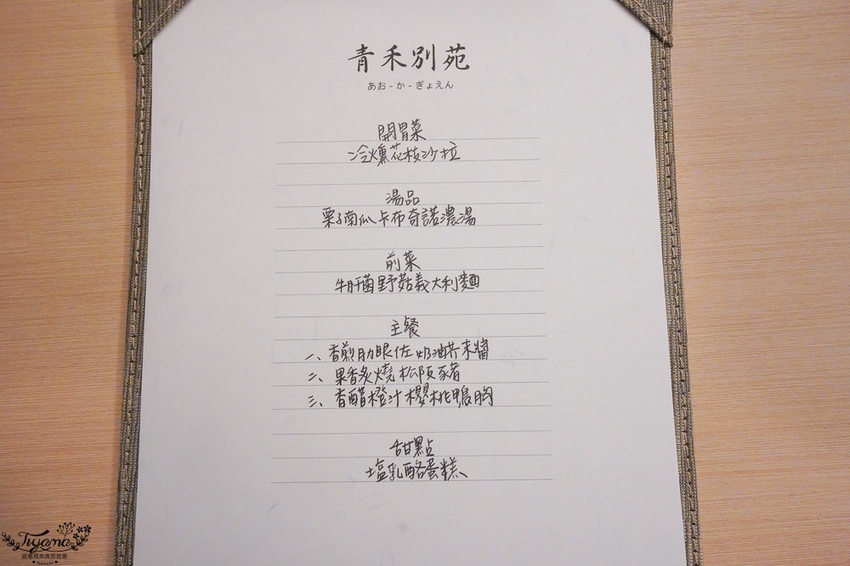 青禾別苑
あお-か-ぎょえん
開胃菜
冷燻花枝沙拉
湯品
栗子南瓜卡布奇諾濃湯
前菜
牛肝菌野菇義大利麵
主餐
一、香煎肋眼佐奶油芥末醬
二、果香炙燒松阪豬
三、香醋橙汁櫻桃鴨胸
甜點
塩乳酪蛋糕
Tiyama